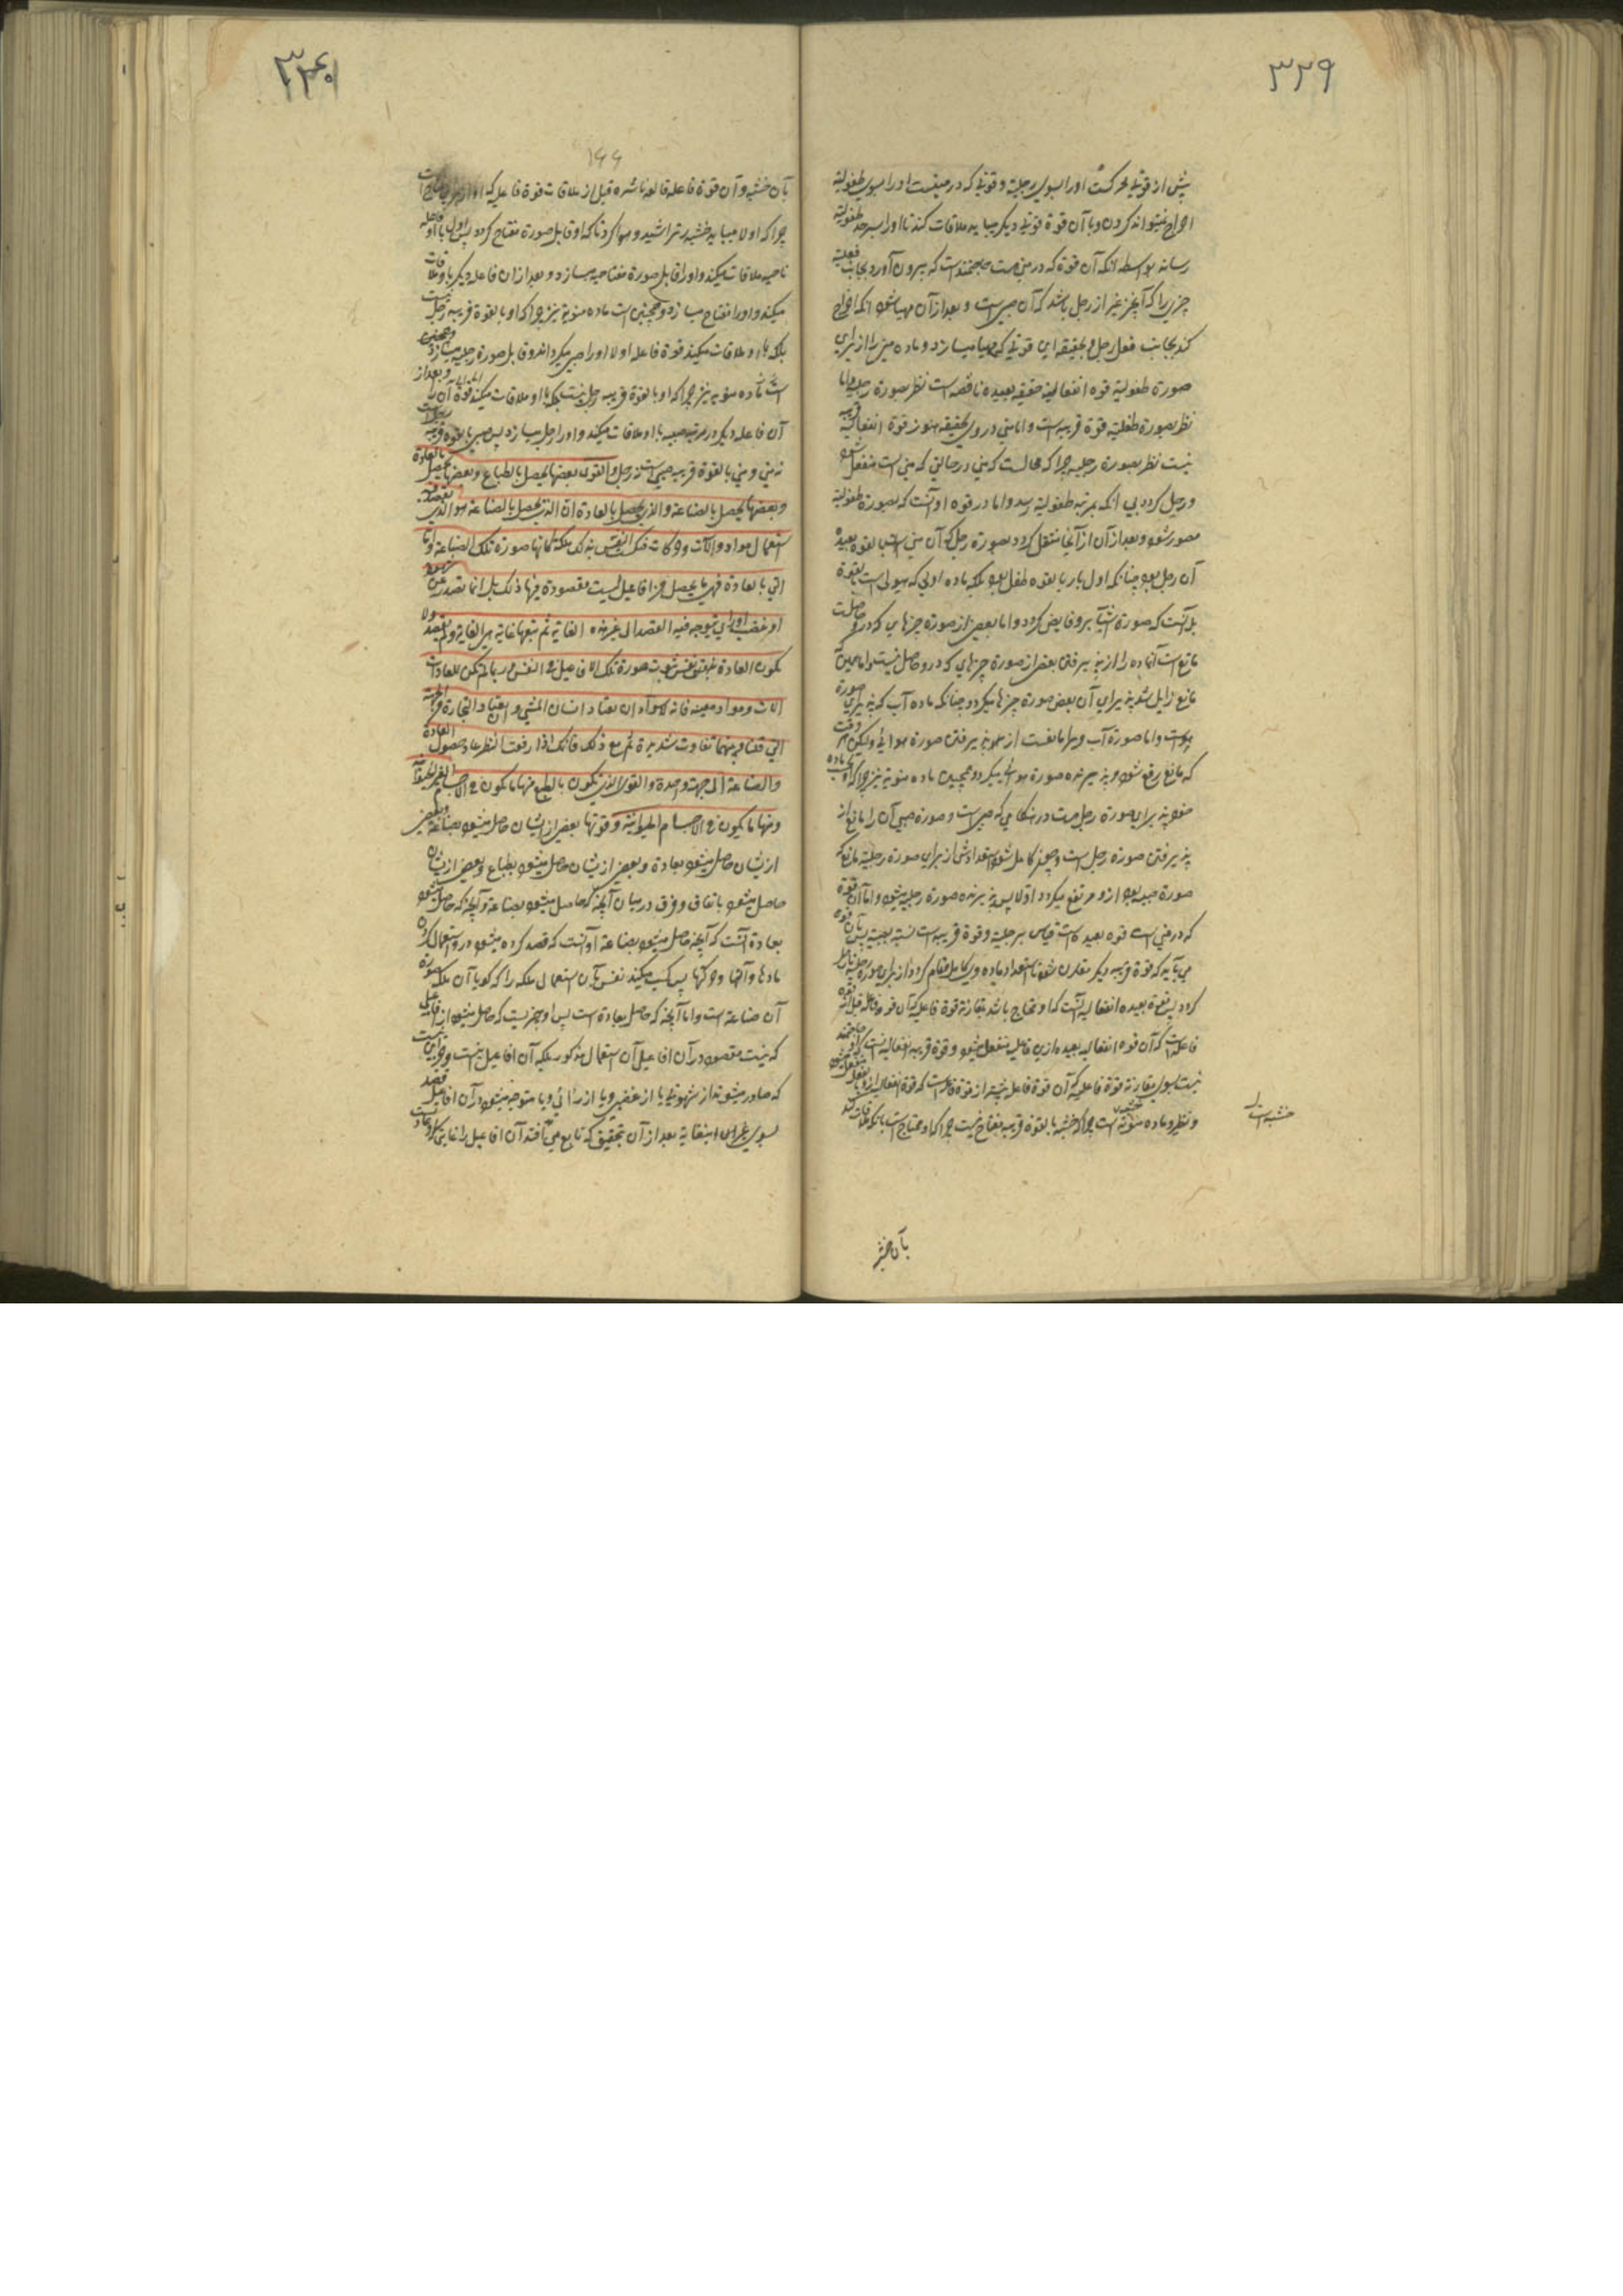 ۳۳۹
پیش از قوتی محرکه او را بسوی رجلیة و قوتی که در منیست او را بسوی طفولیة
اخراج نمیتواند کردن و با آن قوة قوتی دیکر میباید ملاقات کند تا او را بسرحد طفولیة
رساند بواسطه آنکه آن قوة که در منی هست محتمعست که بیرون آورد بجانب فعلیة
چیزی را که آنچیز غیر از رجل باشد که آن صبی است و بعد از آن مهیا شود آنکه اخراج
کند بجانب فعل رجل و بحقیقه این قوتی که مهیا میسازد و ماده منی را از برای
صورة طفولیة قوه انفعالیة حقیقه بعیده ناقصه است نظر بصورة رجلیه و اما
نظر بصورة طفلیة قوة قریبه است و اما منی در وی بحقیقه هنوز قوة انفعالیة قریبه
نیست نظر بصورة رجلیه چرا که محالست که منی در حالتی که منی است منفعل شود
و رجل کردد بی آنکه بمرتبه طفولیة رسد و اما در قوه او آنست که بصورة طفولیة
مصور شود و بعد از آن از آنجا منتقل کردد بصورة رجل که آن منی است بالقوه بعیدة
آن رجل بود چنانکه اول بار بالقوه طفل بود بلکه ماده اولی که هیولی است بالقوة
بل آنست که صورة اشیا برو فایض کردد و اما بعضی از صورة چیزهایی که درو حاصلست
مانع است آنماده را از پذیرفتن بعضی از صورة چیزهایی که درو حاصل نیست و اما چون
مانع زایل شد پذیرای آن بعض صورة چیزها میکردد چنانکه ماده آب که پذیرای صورة
هواست و اما صورة آب و را مانعست از پذیرفتن صورة هوائی ولیکن هر وقت
که مانع رفع شود پذیرنده صورة هوائی میکردد و همچنین ماده منویة نیز چرا که او ماده
منویه پذیرای صورة رجل هست در هنکامی که صبی است و صورة صبی آن را مانع از
پذیرفتن صورة رجل است و چون کامل شود استعدادش از برای صورة رجلیة مانع که
صورة صبیه بود ازو مرتفع میکردد اولا پس پذیرنده صورة رجلیه میشود و اما آن قوة
که در منی است قوه بعیده است قیاس برجلیة و قوة قریبه است نسبة بصبیة پس بآن قوه
می باید که قوة قریبه دیکر مقارن شود تا استعداد ماده وی کامل و تمام کردد از برای صورة رجلیة تا رجل
کردد پس قوة بعیده انفعالیه آنست که او محتاج باشد بمقارنة قوة فاعلیه که آن قوه فاعله قبل از قوه
فاعله است که آن قوه انفعالیه بعیده ازین فاعلیة منفعل میشود و قوة قریبه انفعالیه آنست که او محتاج
نیست بسوی مقارنة قوة فاعلیه که آن قوة فاعله پیشتر از قوة فاعله است که قوة انفعالیه ازو بالفعل منفعل میشود
و نظیر و ماده منویه خشبیه است چرا که خشبه بالقوة قریبه مفتاح نیست چرا که او محتاج است بآنکه ملاقات کند
خشبه است
بآن خشبه
۳۴۰
۱۶۶
بآن خشبه و آن قوة فاعله قالعه ناشره قبل از ملاقات قوة فاعلیه که او از
چرا که اولا میباید خشبه را تراشید و هموار کرد تا که او قابل صورة مفتاح کردد پس اول با او فاعله
ناحیه ملاقات میکند و او را قابل صورة مفتاحیه میسازد و بعد از آن فاعله دیکر با و ملاقات
میکند و او را مفتاح میسازد و همچنین است ماده منویة نیز چرا که او بالقوة قریبه رجل نیست
بلکه با او ملاقات میکند قوة فاعله اولا او را صبی میکرداند و قابل صورة رجلیه میسازد و همچنین
است ماده منویه نیز چرا که او بالقوة قریبه رجل نیست بلکه با او ملاقات میکند قوة و بعد از
آن فاعله دیکر در مرتبه صبیه با او ملاقات میکند و او را رجل میسازد پس صبی بالقوة قریبه رجلست
نه منی و منی بالقوة قریبه صبی است نه رجل و القوی بعضها یحصل بالطباع و بعضها یحصل بالعادة
و بعضها یحصل بالصناعة و الذی یحصل بالعادة ان الذی یحصل بالصناعة هو الذی یقصد فیه
استعمال مواد و آلات و حرکات فتکتسب النفس بذلک ملکة کانها صورة تلک الصناعة و اما
التی بالعادة فهی ما یحصل من افاعیل لیست مقصودة فیها ذلک بل انما تصدر عن شهوة
او غضب او رای یتوجه فیه القصد الی غیر هذه الغایة ثم تتبعها غایة هی الغایة و لم تقصد و لا
یکون العادة هی نفس ثبوت صورة تلک الافاعیل فی النفس و ربما لم یکن للعادة
آلات و مواد معینة فانه لا سواء ان یعتاد انسان المشی و ان یعتاد النجارة من الجهة
التی قلنا و بینهما تفاوت شدیدة ثم مع ذلک فانک اذا دققت النظر عاد حصول العادة
و الصناعة الی جهة واحدة و القوی التی تکون بالطبع منها ما یکون فی الاجسام الغیر الحیوانیة
و منها ما یکون فی الاجسام الحیوانیة و قوتها بعضی از ایشان حاصل میشود بصناعة و بعضی
از ایشان حاصل میشود بعادة و بعضی از ایشان حاصل میشود بطباع و بعضی از ایشان
حاصل میشود باتفاق و فرق در میان آنچه که حاصل میشود بصناعة و آنچه که حاصل میشود
بعادة آنست که آنچه حاصل میشود بصناعة او آنست که قصد کرده میشود درو استعمال کردن
مادها و آلتها و حرکتها پس کسب میکند نفس بآن استعمال ملکه را که کویا آن ملکه صورة
آن صناعة است و اما آنچه که حاصل بعادة است پس او چیزیست که حاصل میشود از افاعیلی
که نیست مقصود در آن افاعیل آن استعمال مذکور بلکه آن افاعیل نیست
که صادر میشوند از شهوتی یا از غضبی و یا از رائی و یا متوجه میشود در آن افاعیل قصد
بسوی غیر این غایة بعد از آن بتحقیق که تابع می افتد آن افاعیل را غایتی که او عادتست